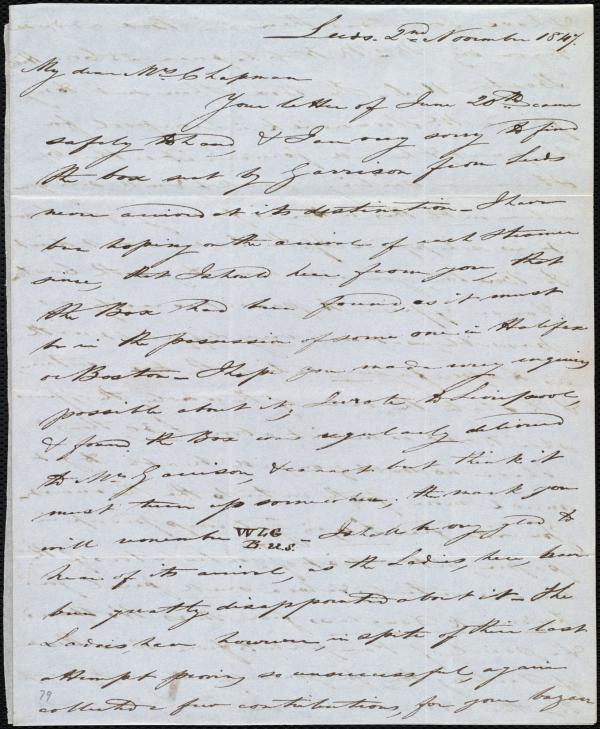 Leeds. 2nd November 1847.
My dear Mrs. Chapman
Your letter of June 20th came
safely to hand, & I am very sorry to find
the box sent by Garrison from Leeds
never arrived at its destination - I have
been hoping on the arrival of each Steamer
since, that I should hear from you, that
the Box had been found, as it must
be in the possession of some one in Halifax
or Boston - I hope you made every inquiry
possible about it, I wrote to Liverpool,
& found the Box was regularly delivered
to Mr Garrison, & cannot but think it
must turn up somewhere; the mark you
will remember WLG
B. U.S. - I shall be very glad to
hear of its arrival, as the Ladies, here, have
been greatly disappointed about it - The
Ladies have however, in spite of their last
attempt proving so unsuccessful, again
collected a few contributions, for your bazaar
79